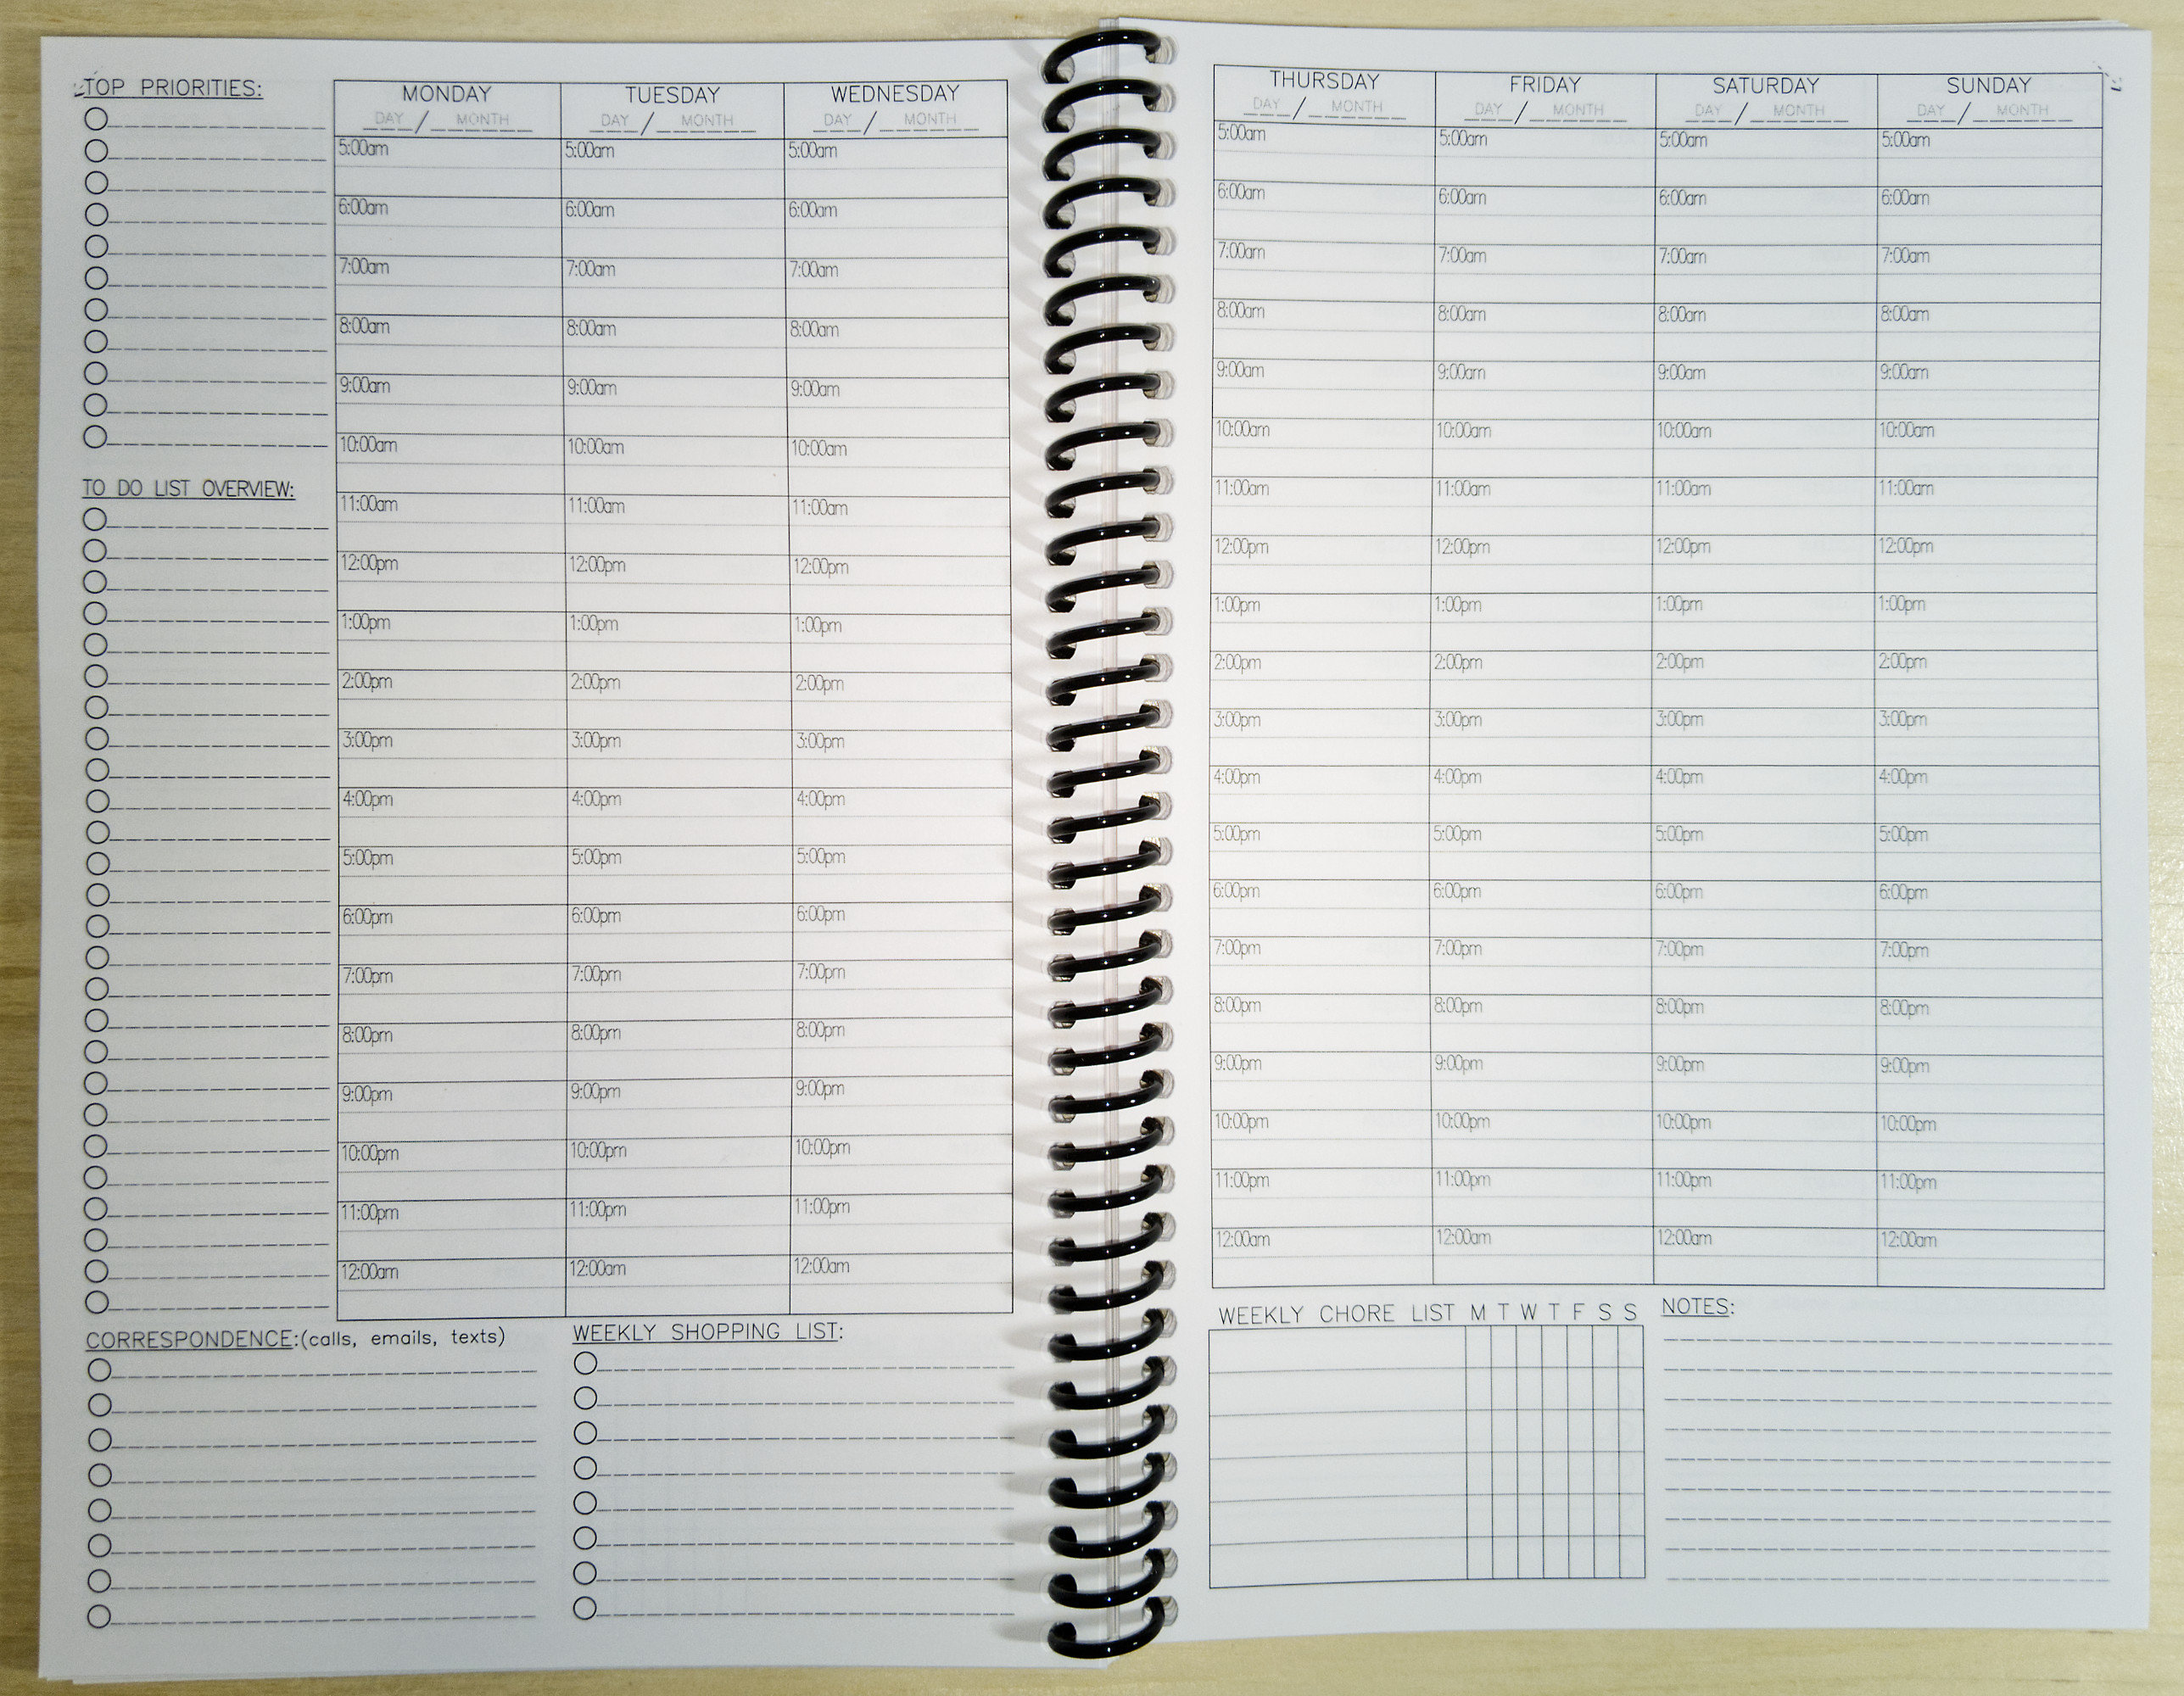 TOP PRIORITIES:
TO DO LIST OVERVIEW:
MONDAY TUESDAY WEDNESDAY
DAY / MONTH DAY / MONTH DAY / MONTH
5:00am 5:00am 5:00am
6:00am 6:00am 6:00am
7:00am 7:00am 7:00am
8:00am 8:00am 8:00am
9:00am 9:00am 9:00am
10:00am 10:00am 10:00am
11:00am 11:00am 11:00am
12:00pm 12:00pm 12:00pm
1:00pm 1:00pm 1:00pm
2:00pm 2:00pm 2:00pm
3:00pm 3:00pm 3:00pm
4:00pm 4:00pm 4:00pm
5:00pm 5:00pm 5:00pm
6:00pm 6:00pm 6:00pm
7:00pm 7:00pm 7:00pm
8:00pm 8:00pm 8:00pm
9:00pm 9:00pm 9:00pm
10:00pm 10:00pm 10:00pm
11:00pm 11:00pm 11:00pm
12:00am 12:00am 12:00am
CORRESPONDENCE:(calls, emails, texts)
WEEKLY SHOPPING LIST:
THURSDAY FRIDAY SATURDAY SUNDAY
DAY / MONTH DAY / MONTH DAY / MONTH DAY / MONTH
5:00am 5:00am 5:00am 5:00am
6:00am 6:00am 6:00am 6:00am
7:00am 7:00am 7:00am 7:00am
8:00am 8:00am 8:00am 8:00am
9:00am 9:00am 9:00am 9:00am
10:00am 10:00am 10:00am 10:00am
11:00am 11:00am 11:00am 11:00am
12:00pm 12:00pm 12:00pm 12:00pm
1:00pm 1:00pm 1:00pm 1:00pm
2:00pm 2:00pm 2:00pm 2:00pm
3:00pm 3:00pm 3:00pm 3:00pm
4:00pm 4:00pm 4:00pm 4:00pm
5:00pm 5:00pm 5:00pm 5:00pm
6:00pm 6:00pm 6:00pm 6:00pm
7:00pm 7:00pm 7:00pm 7:00pm
8:00pm 8:00pm 8:00pm 8:00pm
9:00pm 9:00pm 9:00pm 9:00pm
10:00pm 10:00pm 10:00pm 10:00pm
11:00pm 11:00pm 11:00pm 11:00pm
12:00am 12:00am 12:00am 12:00am
WEEKLY CHORE LIST M T W T F S S
NOTES: